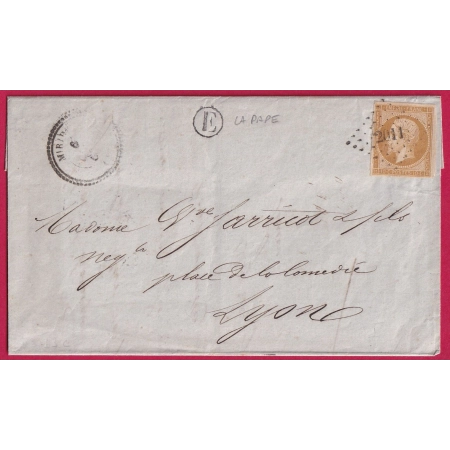 E LA PAPE
2011
Madame Vve Jarricot & fils
negt.
place de la Comedie
Lyon